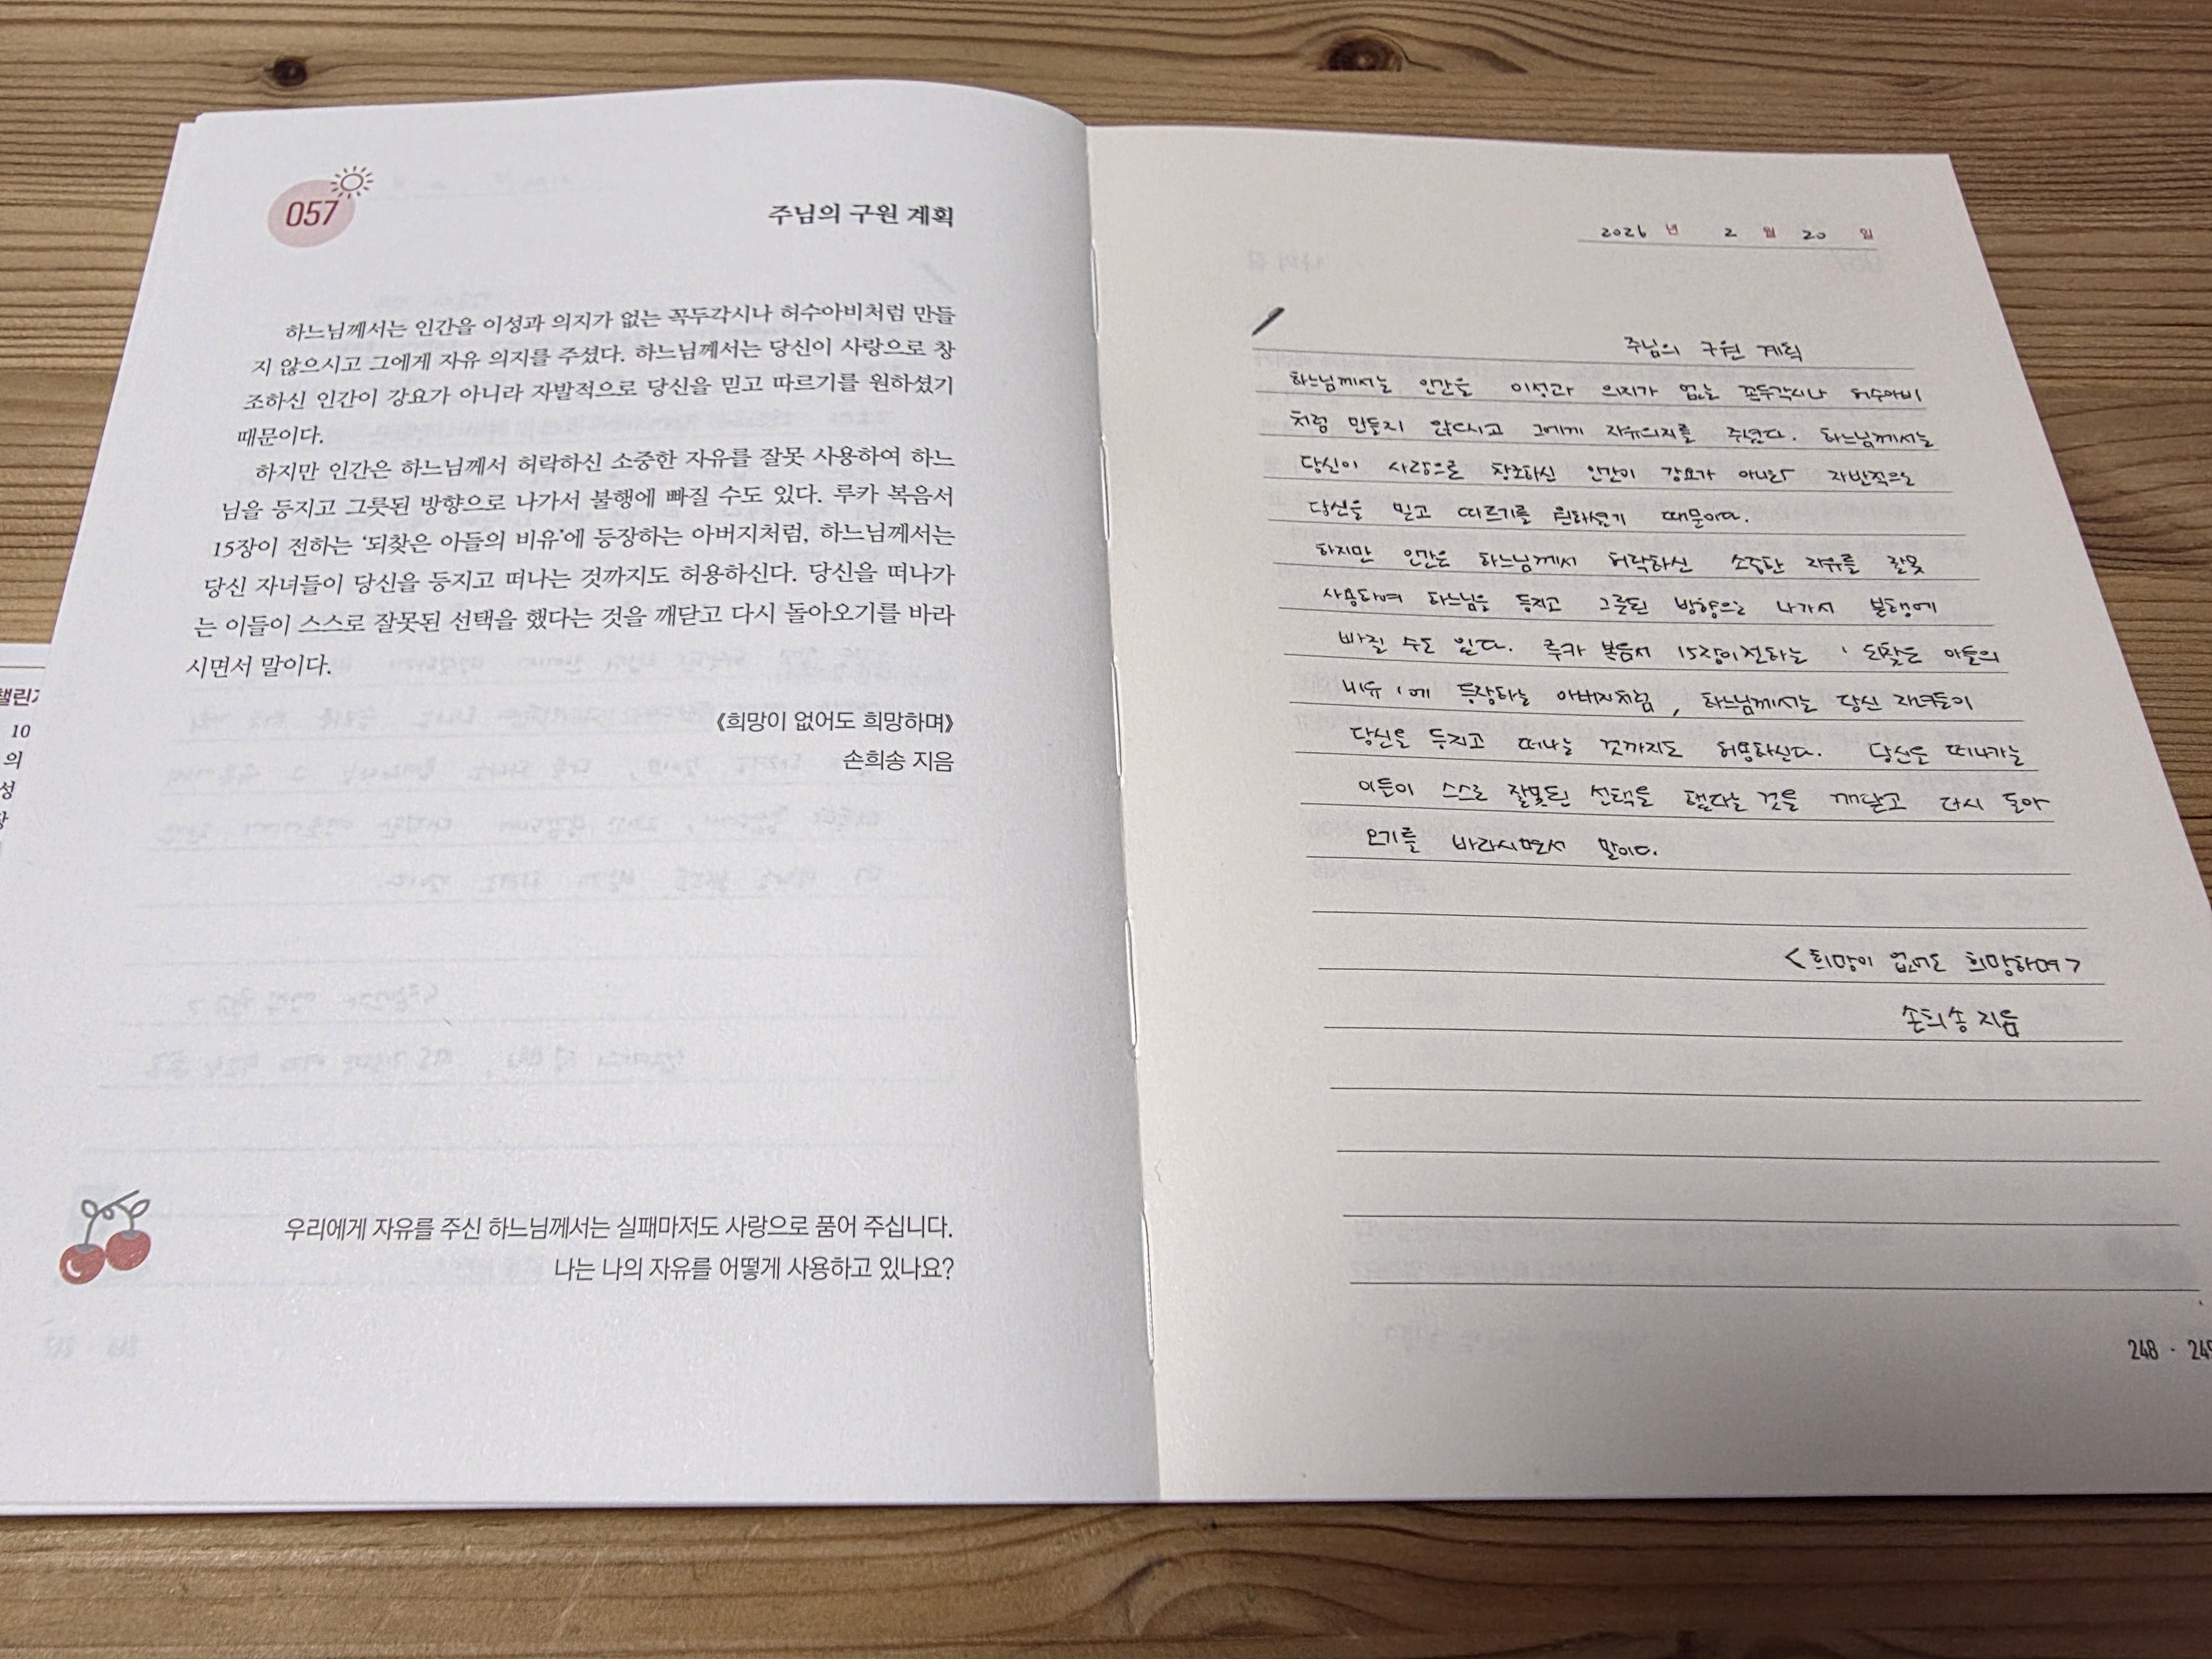 057
주님의 구원 계획
하느님께서는 인간을 이성과 의지가 없는 꼭두각시나 허수아비처럼 만들
지 않으시고 그에게 자유 의지를 주셨다. 하느님께서는 당신이 사랑으로 창
조하신 인간이 강요가 아니라 자발적으로 당신을 믿고 따르기를 원하셨기
때문이다.
하지만 인간은 하느님께서 허락하신 소중한 자유를 잘못 사용하여 하느
님을 등지고 그릇된 방향으로 나가서 불행에 빠질 수도 있다. 루카 복음서
15장이 전하는 ‘되찾은 아들의 비유’에 등장하는 아버지처럼, 하느님께서는
당신 자녀들이 당신을 등지고 떠나는 것까지도 허용하신다. 당신을 떠나가
는 이들이 스스로 잘못된 선택을 했다는 것을 깨닫고 다시 돌아오기를 바라
시면서 말이다.
《희망이 없어도 희망하며》
손희송 지음
우리에게 자유를 주신 하느님께서는 실패마저도 사랑으로 품어 주십니다.
나는 나의 자유를 어떻게 사용하고 있나요?
챌린
10
의
성
2026 년 2 월 20 일
주님의 구원 계획
하느님께서는 인간을 이성과 의지가 없는 꼭두각시나 허수아비
처럼 만들지 않으시고 그에게 자유의지를 주셨다. 하느님께서는
당신이 사랑으로 창조하신 인간이 강요가 아니라 자발적으로
당신을 믿고 따르기를 원하셨기 때문이다.
하지만 인간은 하느님께서 허락하신 소중한 자유를 잘못
사용하여 하느님을 등지고 그릇된 방향으로 나가서 불행에
빠질 수도 있다. 루카 복음서 15장이 전하는 ' 되찾은 아들의
비유 ' 에 등장하는 아버지처럼, 하느님께서는 당신 자녀들이
당신을 등지고 떠나는 것까지도 허용하신다. 당신을 떠나가는
이들이 스스로 잘못된 선택을 했다는 것을 깨닫고 다시 돌아
오기를 바라시면서 말이다.
<희망이 없어도 희망하며>
손희송 지음
248 · 249